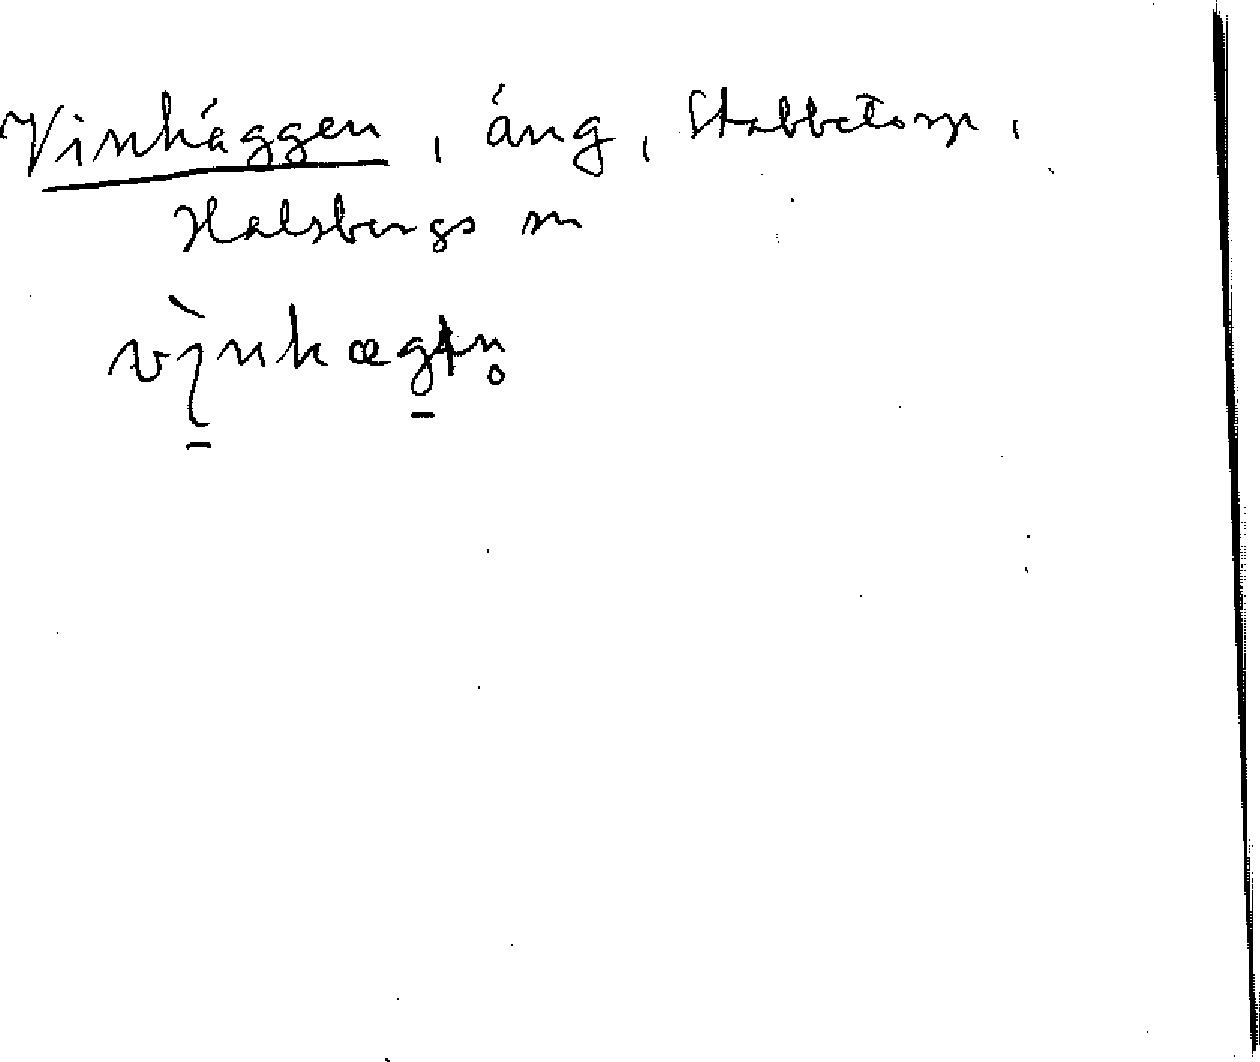 Vinhäggen, äng, Stabbetorp,
Halsbergs sn